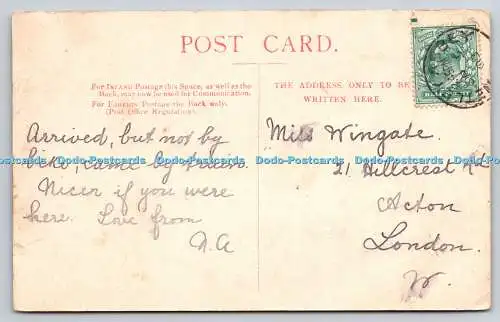 POST CARD.
For Inland Postage this Space, as well as the
Back, may now be used for Communication.
For Foreign Postage the Back only.
(Post Office Regulation).
THE ADDRESS ONLY TO BE
WRITTEN HERE.
Arrived, but not by
bike, came by train.
Nicer if you were
here. Love from
N.A
Miss Wingate.
21 Hillcrest Rd
Acton
London.
W.
Dodo-Postcards Dodo-Postcards Dodo-Postcards Dodo-Postcards Dodo-Postcards